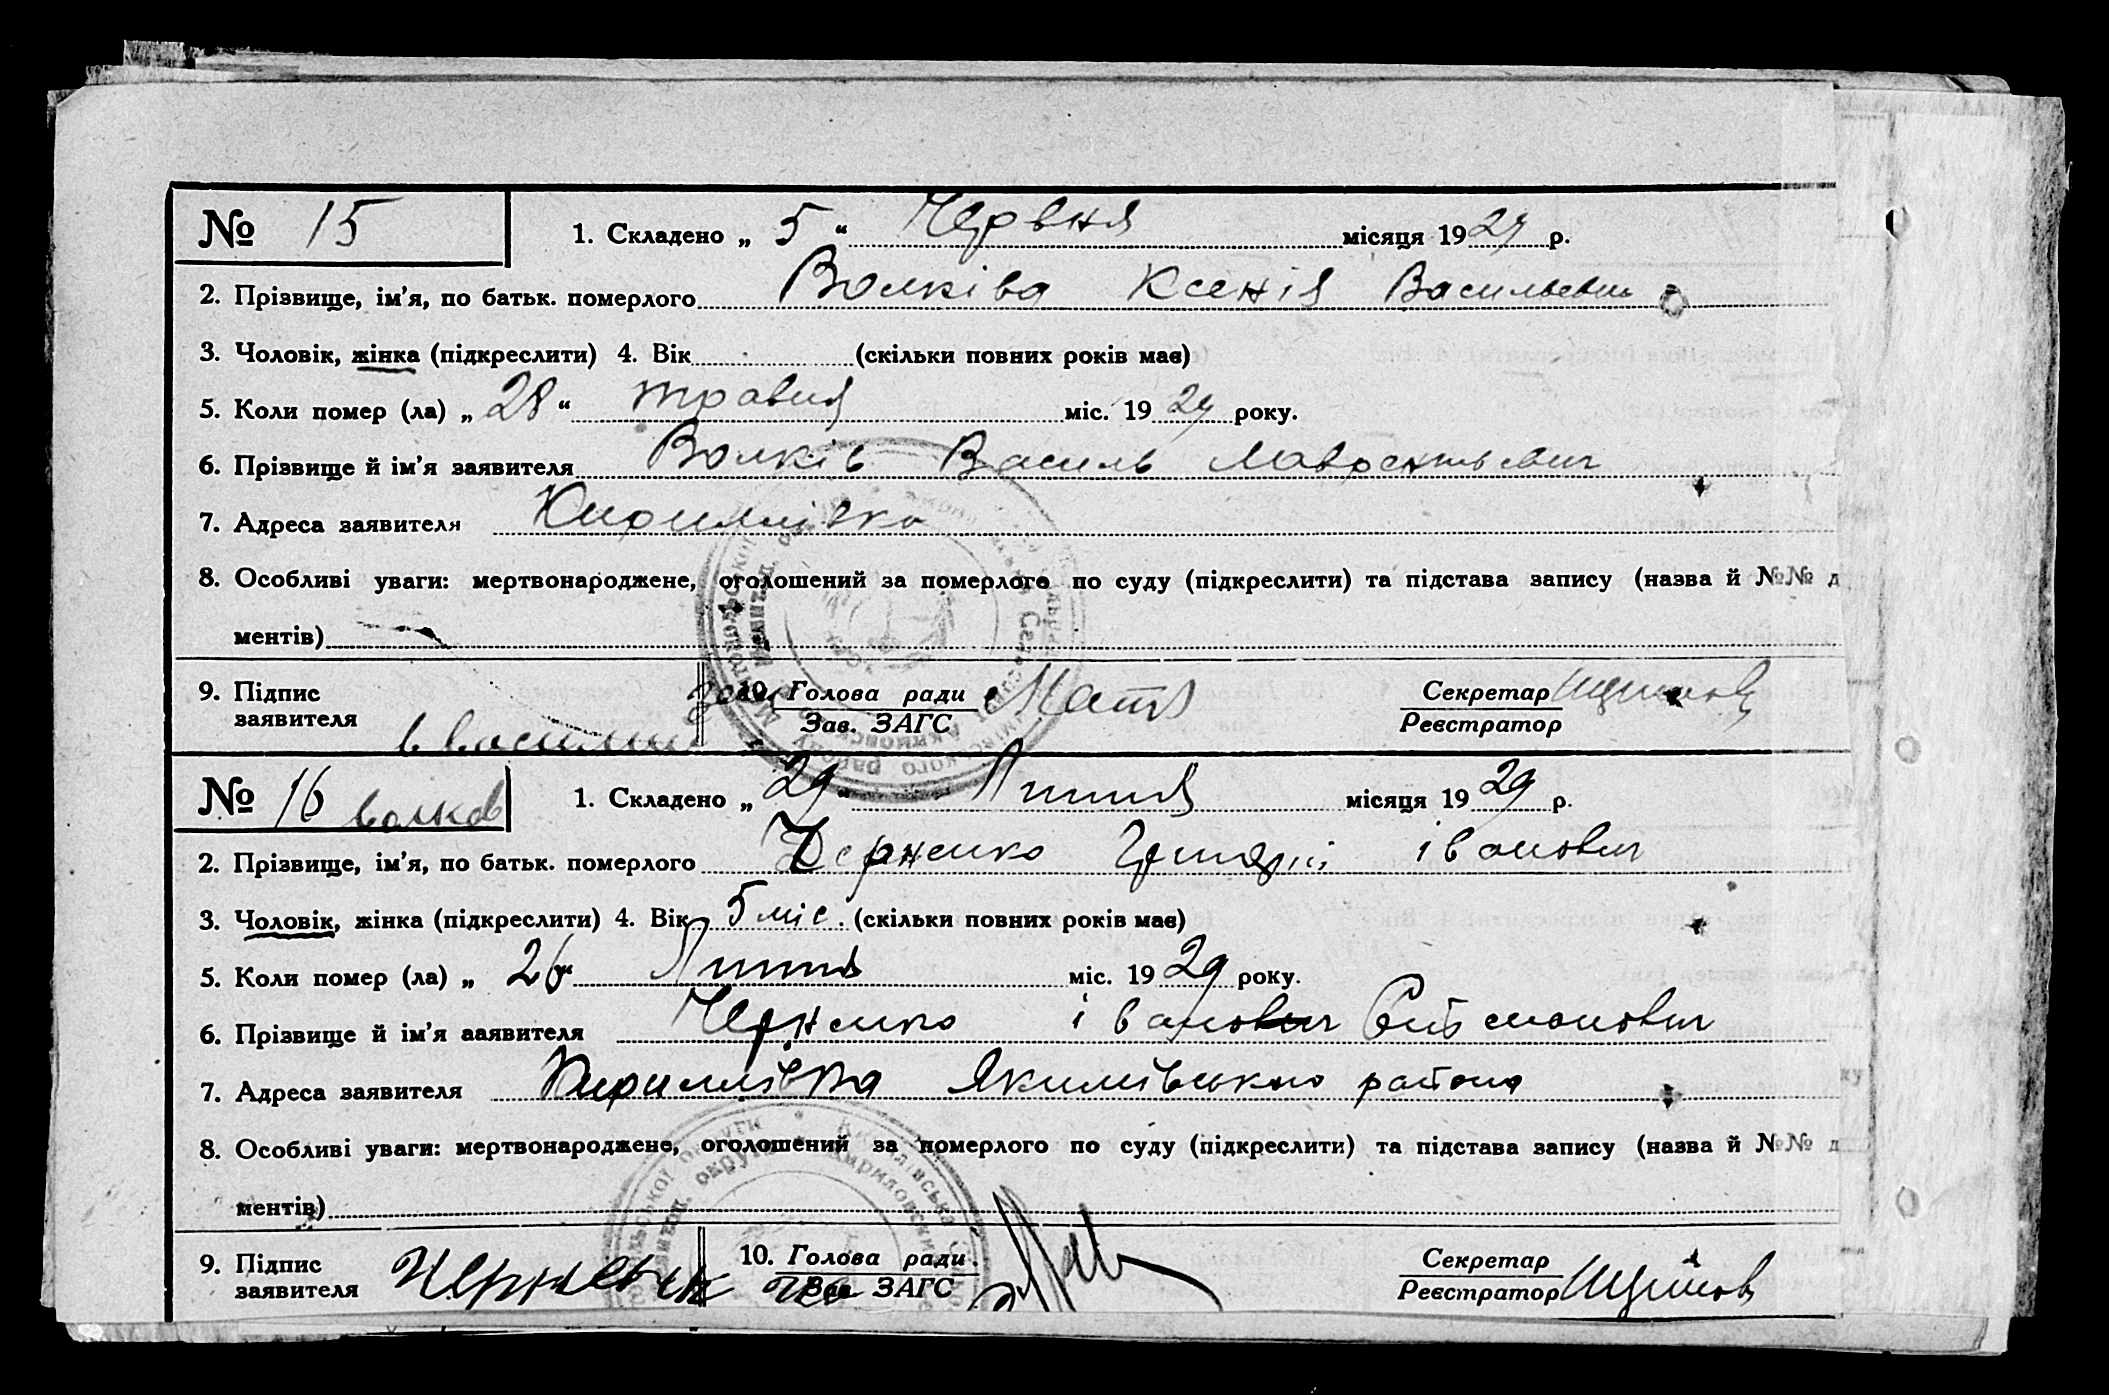 № 15 1. Складено „ 5 “ Червня місяця 1929 р.
2. Прізвище, ім'я, по батьк. померлого Волківа Ксенія Васильевна
3. Чоловік, жінка (підкреслити) 4. Вік (скільки повних років має)
5. Коли помер (ла) „ 28 “ травня міс. 1929 року.
6. Прізвище й ім'я заявителя Волків Василь Лаврентьевич
7. Адреса заявителя Кириллівка
8. Особливі уваги: мертвонароджене, оголошений за померлого по суду (підкреслити) та підстава запису (назва й №№ д
ментів)
9. Підпис 10. Голова ради Секретар
заявителя Зав. ЗАГС Реєстратор
№ 16 1. Складено „ 29 “ Липня місяця 1929 р.
2. Прізвище, ім'я, по батьк. померлого Черненко Григорій іванович
3. Чоловік, жінка (підкреслити) 4. Вік 5 міс. (скільки повних років має)
5. Коли помер (ла) „ 26 “ Липня міс. 1929 року.
6. Прізвище й ім'я заявителя Черненко іванович
7. Адреса заявителя Кириллівка Якимівського району
8. Особливі уваги: мертвонароджене, оголошений за померлого по суду (підкреслити) та підстава запису (назва й №№ д
ментів)
9. Підпис 10. Голова ради Секретар
заявителя Зав ЗАГС Реєстратор